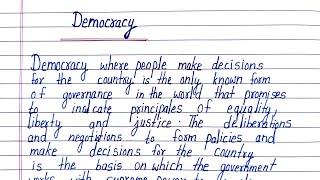 Democracy
Democracy where people make decisions
for the country is the only known form
of governance in the world that promises
to inalcate principales of equality,
liberty and justice. The deliberations
and negotiations to form policies and
make decisions for the country
is the basis on which the government
works with supreme power to